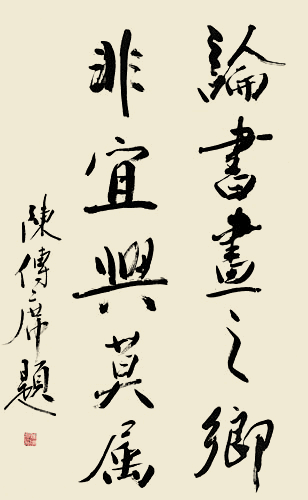 論書畫之鄉
非宜興莫属
陳傳席題